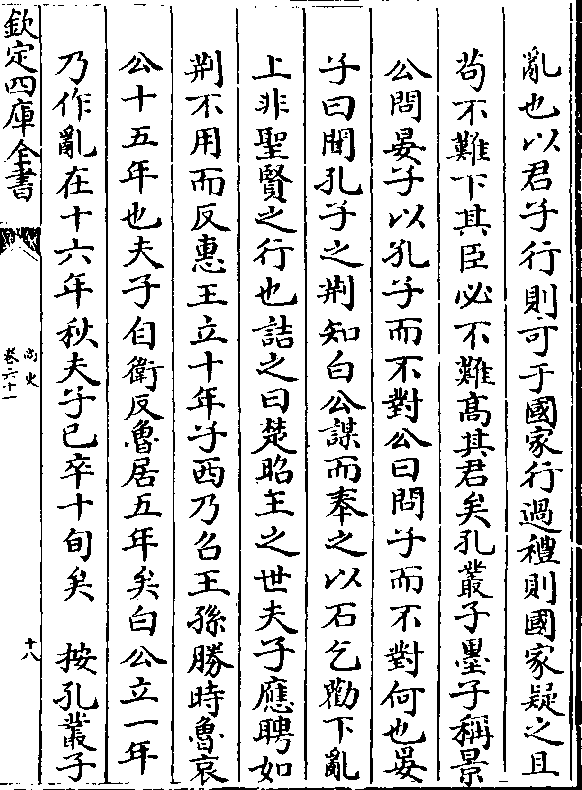 亂也以君子行則可于國家行過禮則國家疑之且
苟不難下其臣必不難髙其君矣孔叢子墨子稱景
公問晏子以孔子而不對公曰問子而不對何也晏
子曰聞孔子之荆知白公謀而奉之以石乞勸下亂
上非聖賢之行也詰之曰楚昭王之世夫子應聘如
荆不用而反惠王立十年子西乃召王孫勝時魯哀
公十五年也夫子自衛反魯居五年矣白公立一年
乃作亂在十六年秋夫子已卒十旬矣　按孔叢子
欽定四庫全書
尚史
卷六十一
十八